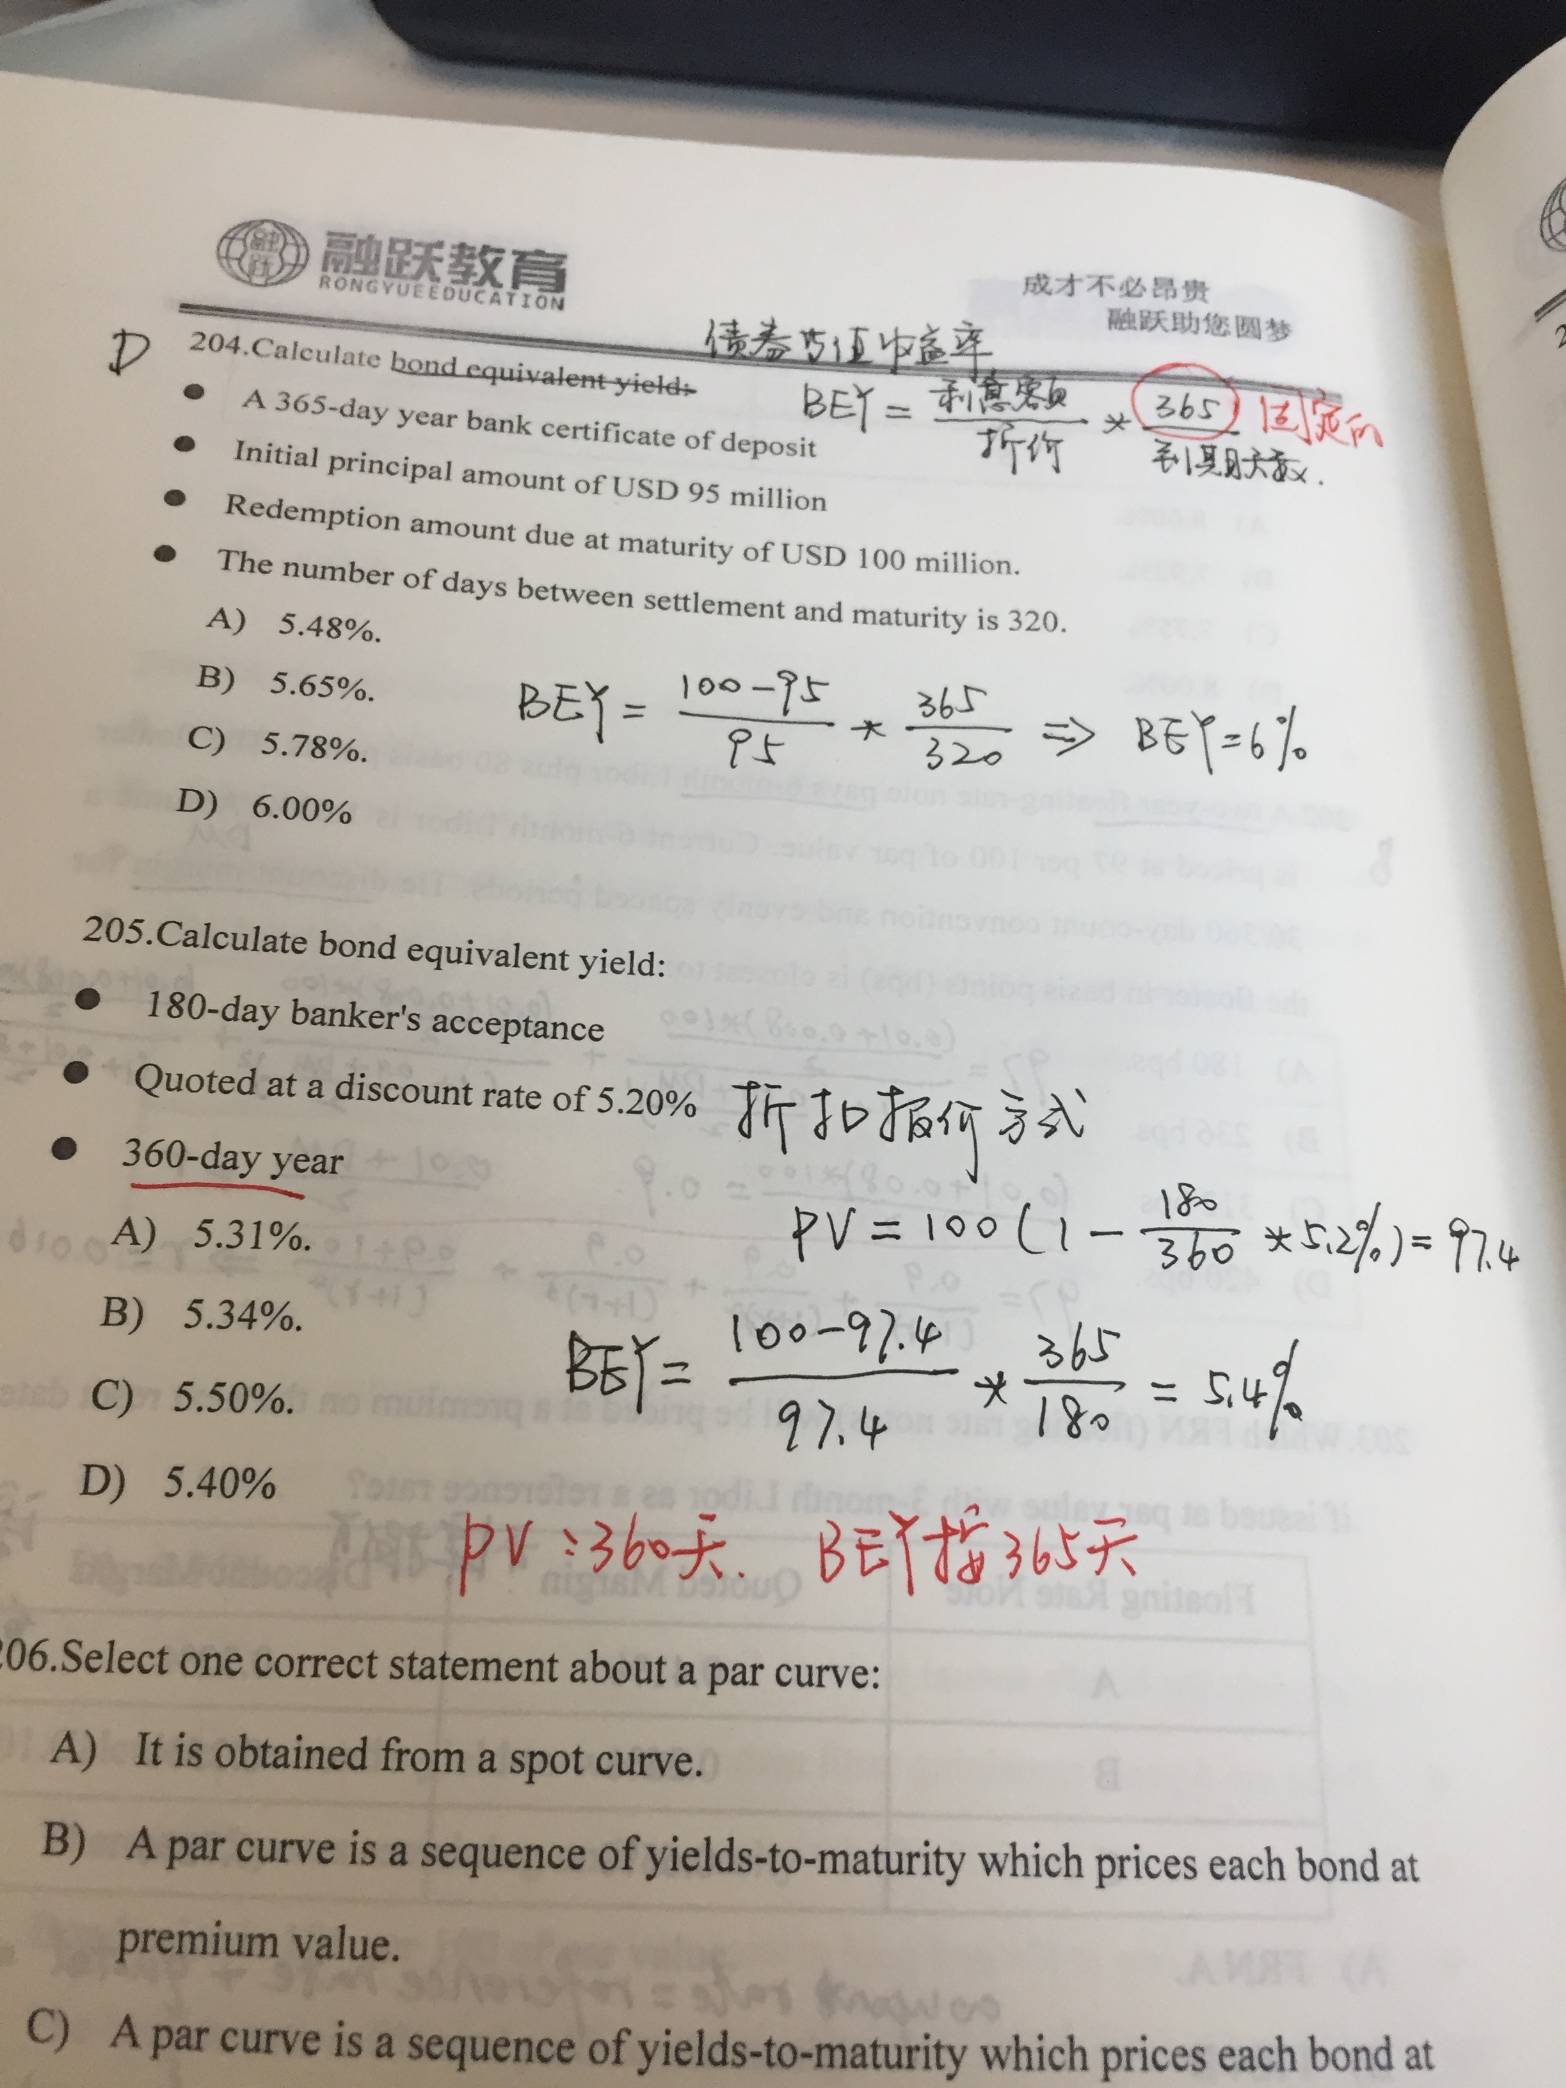 融跃教育
RONGYUEEDUCATION
成才不必昂贵
融跃助您圆梦
D 204.Calculate bond equivalent yield:
债券等值收益率
BEY = 利息额/折价 * 365/到期天数. 固定的
● A 365-day year bank certificate of deposit
● Initial principal amount of USD 95 million
● Redemption amount due at maturity of USD 100 million.
● The number of days between settlement and maturity is 320.
A) 5.48%.
B) 5.65%.
C) 5.78%.
D) 6.00%
BEY = 100-95/95 * 365/320 ⇒ BEY=6%
205.Calculate bond equivalent yield:
● 180-day banker's acceptance
● Quoted at a discount rate of 5.20% 折扣报价方式
● 360-day year
A) 5.31%.
PV = 100(1 - 180/360 * 5.2%) = 97.4
B) 5.34%.
BEY = 100-97.4/97.4 * 365/180 = 5.4%
C) 5.50%.
D) 5.40%
PV:360天. BEY按365天
206.Select one correct statement about a par curve:
A) It is obtained from a spot curve.
B) A par curve is a sequence of yields-to-maturity which prices each bond at
premium value.
C) A par curve is a sequence of yields-to-maturity which prices each bond at